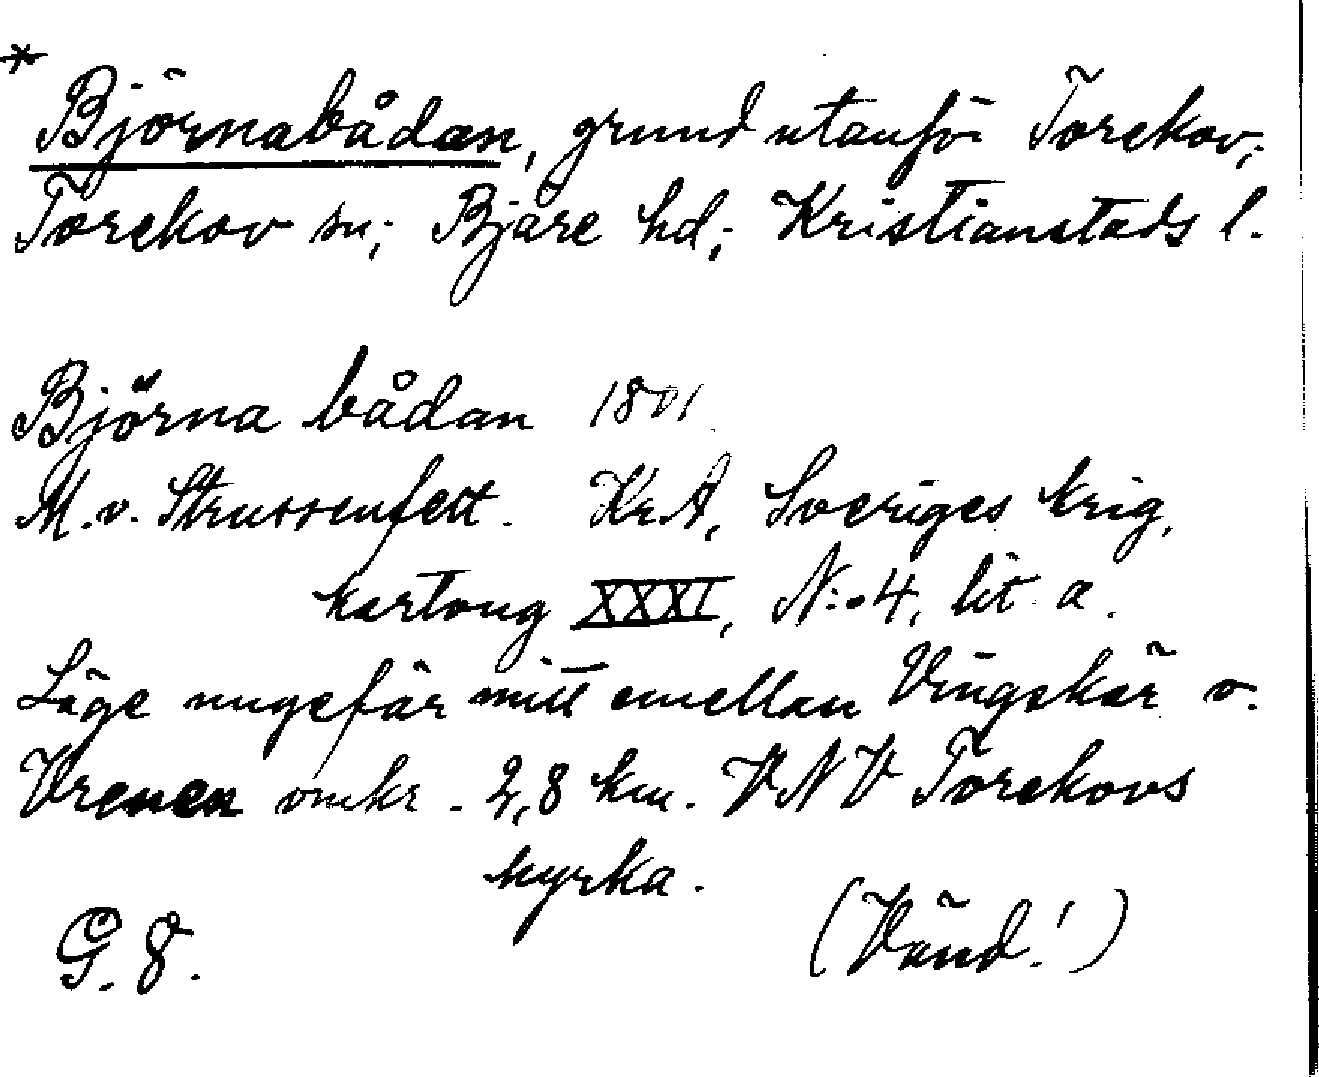 * Björnabådan, grund utanför Torekov;
Torekov sn; Bjäre hd; Kristianstads l.
Björna bådan 1801.
M. v. Strussenfelt. Kr.A, Sveriges krig,
kartong XXXI, N:o 4, lit a.
Läge ungefär mitt emellan Vingskär o.
Vrenen omkr. 2,8 km. VNV Torekovs
kyrka.
G. 8. (Vänd!)